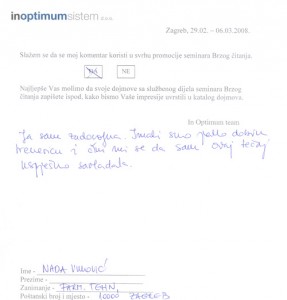 inoptimumsistem d.o.o.
Zagreb, 29.02. – 06.03.2008.
Slažem se da se moj komentar koristi u svrhu promocije seminara Brzog čitanja.
DA NE
Najljepše Vas molimo da svoje dojmove sa službenog dijela seminara Brzog
čitanja zapišete ispod, kako bismo Vaše impresije uvrstili u katalog dojmova.
In Optimum team:
Ja sam zadovoljna. Imali smo jako dobru
trenericu i čini mi se da sam ovaj tečaj
uspješno savladala.
Ime - NADA
Prezime -
Zanimanje - FARM. TEHN,
Poštanski broj i mjesto - 10000 ZAGREB